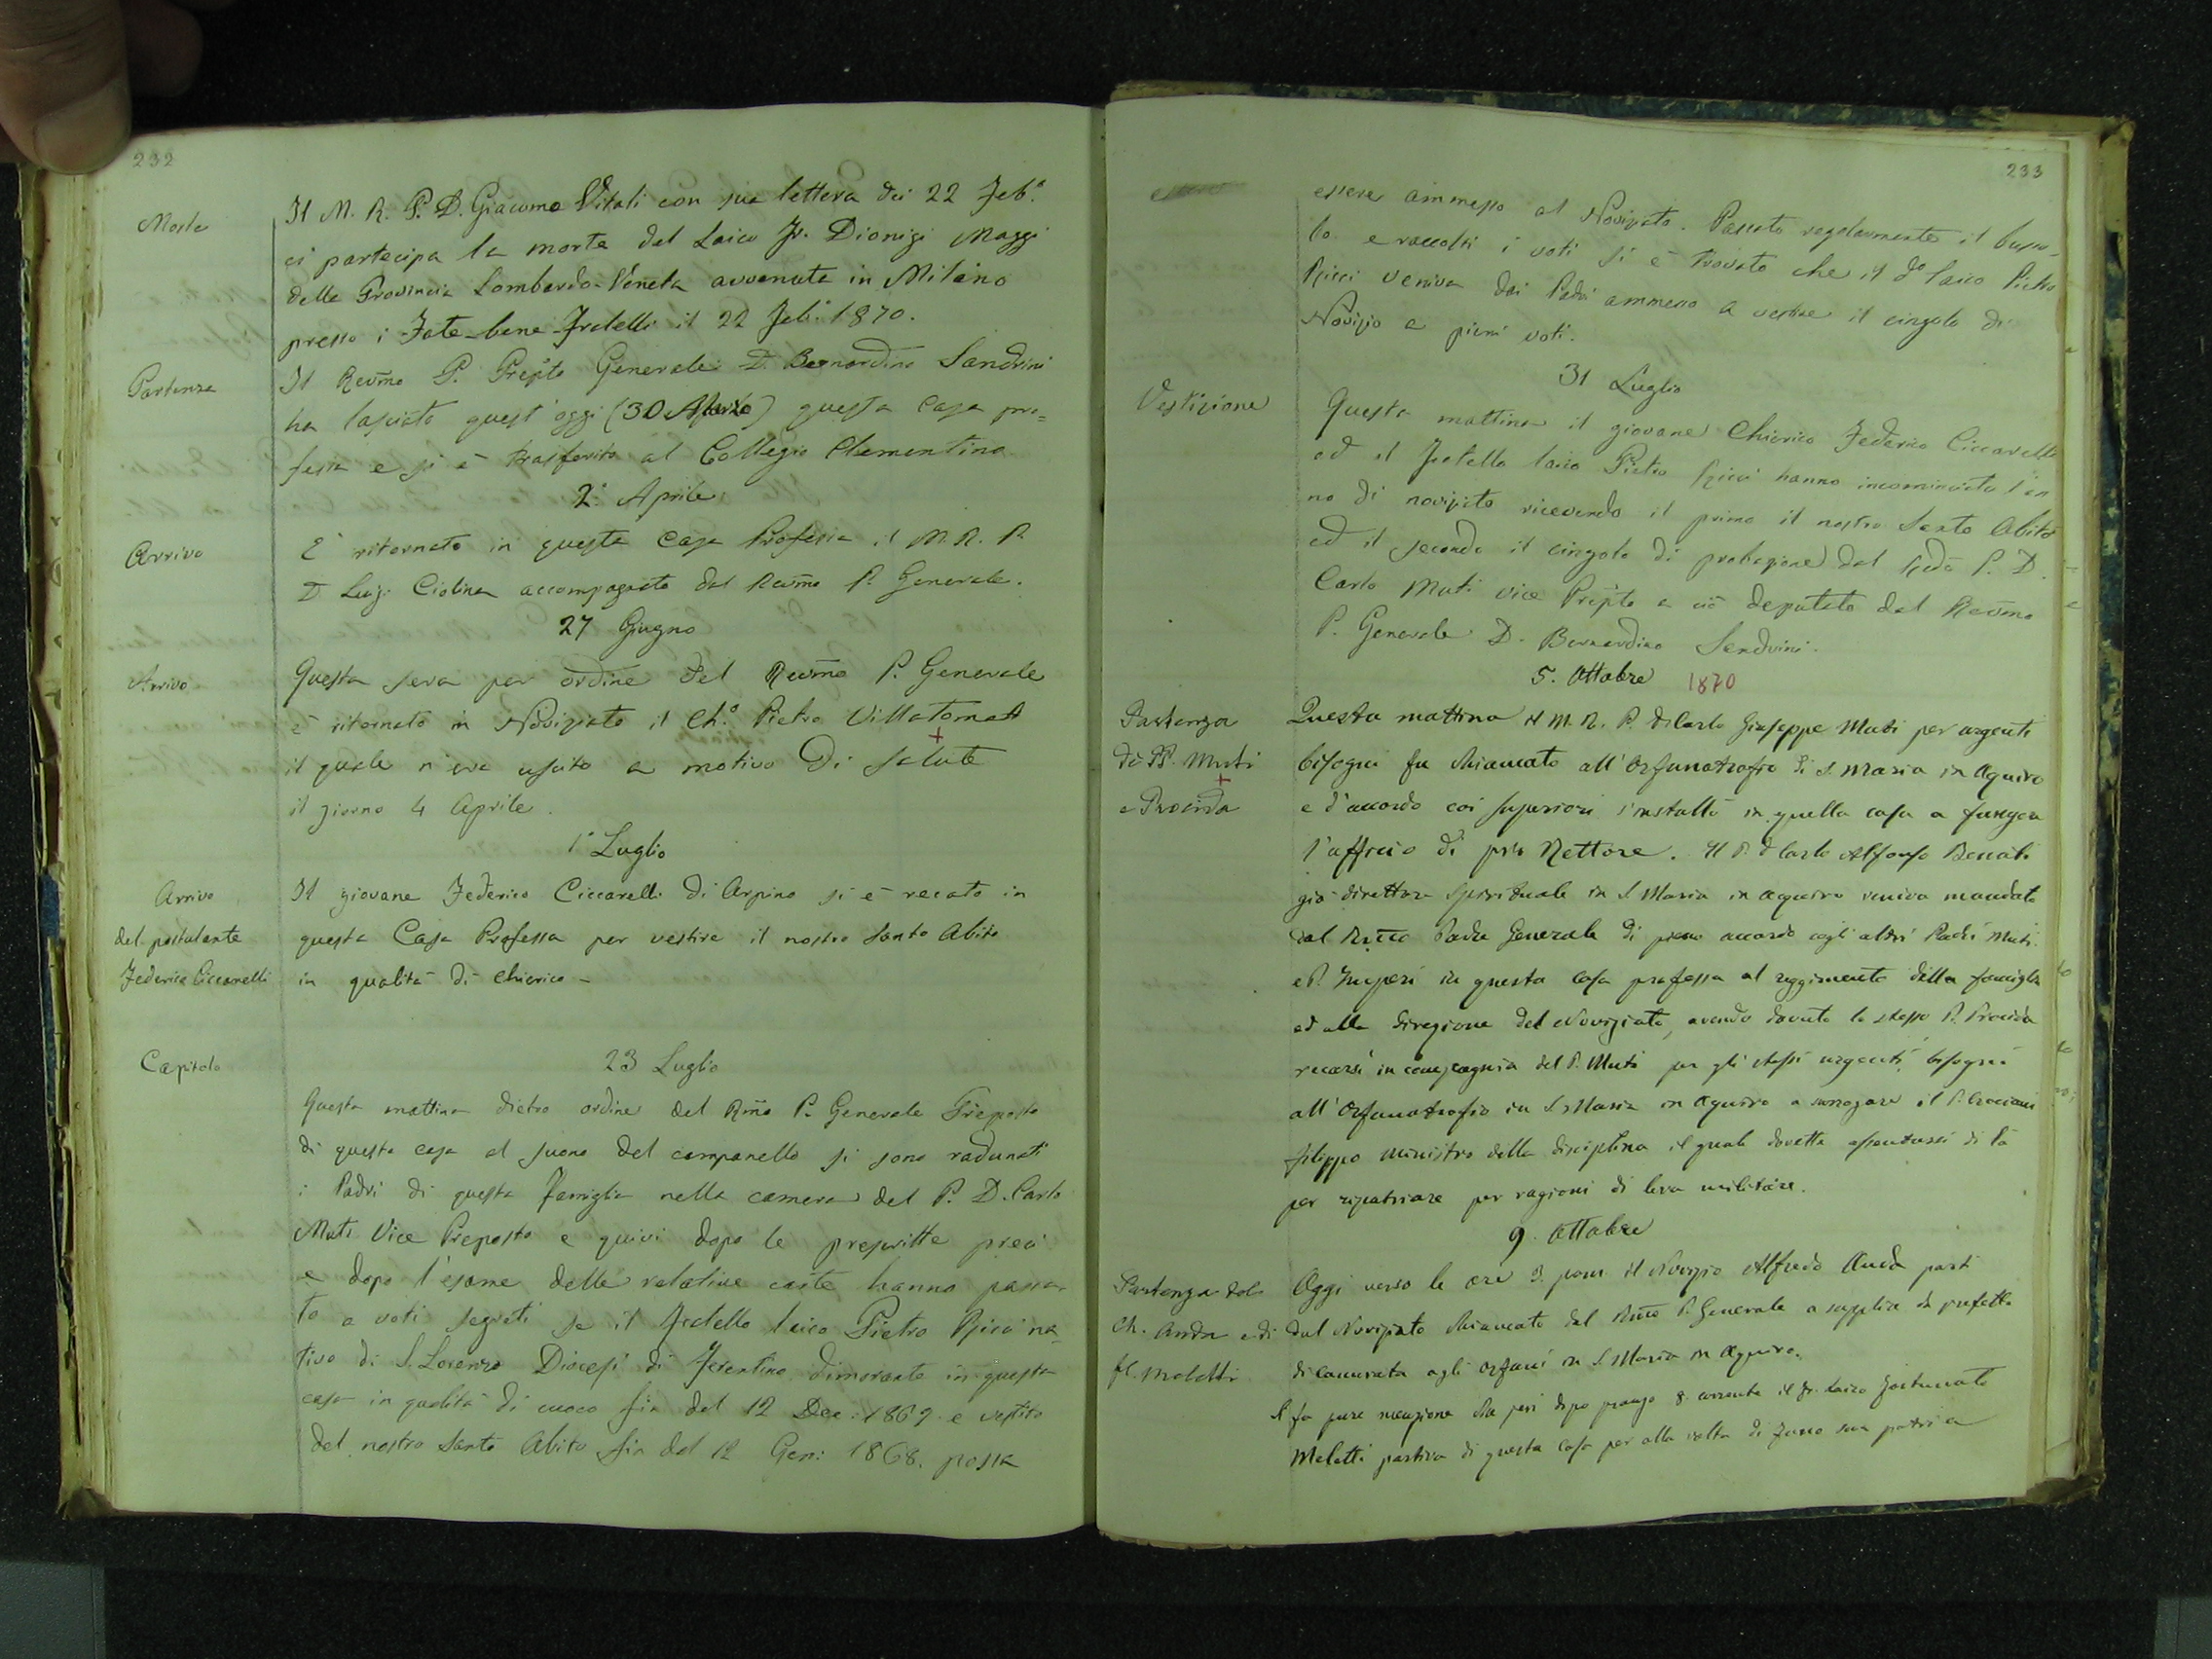 232
Morte
Il M. R. P. D. Giacomo Vitali con sua lettera dei 22 Feb.°
ci partecipa la morte del Laico Fr. Dionigi Maggi
della Provincia Lombardo-Veneta avvenuta in Milano
presso i Fate-bene-Fratelli il 22 Feb. 1870.
Partenza
Il Revmo P. Prepto Generale D. Bernardino Sandrini
ha lasciato quest'oggi (30 Marzo) questa Casa pro=
fessa e si è trasferito al Collegio Clementino
2. Aprile
Arrivo
E' ritornato in questa Casa Professa il M. R. P.
D. Luigi Ciolina accompagnato dal Revmo P. Generale.
27 Giugno
Arrivo
Questa sera per ordine del Revmo P. Generale
è ritornato in Noviziato il Ch.° Pietro Villatomat
il quale n'era uscito a motivo di salute
il giorno 4 Aprile.
1° Luglio
Arrivo
del postulante
Federico Ciccarelli
Il giovane Federico Ciccarelli di Arpino si è recato in
questa Casa Professa per vestire il nostro Santo Abito
in qualità di chierico -
Capitolo
23 Luglio
Questa mattina dietro ordine del Rmo P. Generale Preposto
di questa casa al suono del campanello si sono radunati
i Padri di questa famiglia nella camera del P. D. Carlo
Muti Vice Preposto e quivi dopo le prescritte preci
e dopo l'esame delle relative carte hanno passa-
to a voti segreti se il fratello laico Pietro Ricci na-
tivo di S. Lorenzo Diocesi di Ferentino dimorante in questa
casa in qualità di cuoco fin dal 12 Dec. 1867 e vestito
del nostro Santo Abito fin dal 12 Gen: 1868. possa
233
essere ammesso al Noviziato. Passato regolarmente il busso-
lo e raccolti i voti si è trovato che il do laico Pietro
Ricci veniva dai Padri ammesso a vestire il cingolo di
Novizio a pieni voti.
31 Luglio
Vestizione
Questa mattina il giovane Chierico Federico Ciccarelli
ed il fratello laico Pietro Ricci hanno incominciato l'an
no di noviziato ricevendo il primo il nostro Santo Abito
ed il secondo il cingolo di probazione dal P. D.
Carlo Muti vice Prepto a ciò deputato dal Revmo
P. Generale D. Bernardino Sandrini.
5. Ottobre 1870
Partenza
di PP. Muti
e Procida
Questa mattina il M. R. P. D. Carlo Giuseppe Muti per urgenti
bisogni fu chiamato all'Orfanotrofio di S. Maria in Aquiro
e d'accordo coi Superiori s'installò in quella casa a fungere
l'officio di pro Rettore. Il P. D. Carlo Alfonso Benati
già direttore spirituale in S. Maria in Aquiro veniva mandato
dal Rmo Padre Generale di pieno accordo cogli altri Padri Muti
e P. Imperi in questa casa professa al reggimento della famiglia
ed alla direzione del Noviziato, avendo dovuto lo stesso P. Procida
recarsi in compagnia del P. Muti per gli stessi urgenti bisogni
all'Orfanotrofio in S. Maria in Aquiro a surrogare il P.
Filippo ministro della disciplina il quale dovette assentarsi di là
per ripatriare per ragioni di leva militare.
9. Ottobre
Partenza del
Ch. Anda e di
fl. Meletti
Oggi verso le ore 3. pom. il Novizio Alfredo Anda partì
dal Noviziato chiamato dal Rmo P. Generale a supplire da prefetto
di camerata agli orfani in S. Maria in Aquiro.
Si fa pure menzione che jeri dopo pranzo 8. corrente il fr. laico Fortunato
Meletti partiva di questa casa per alla volta di Fano sua patria